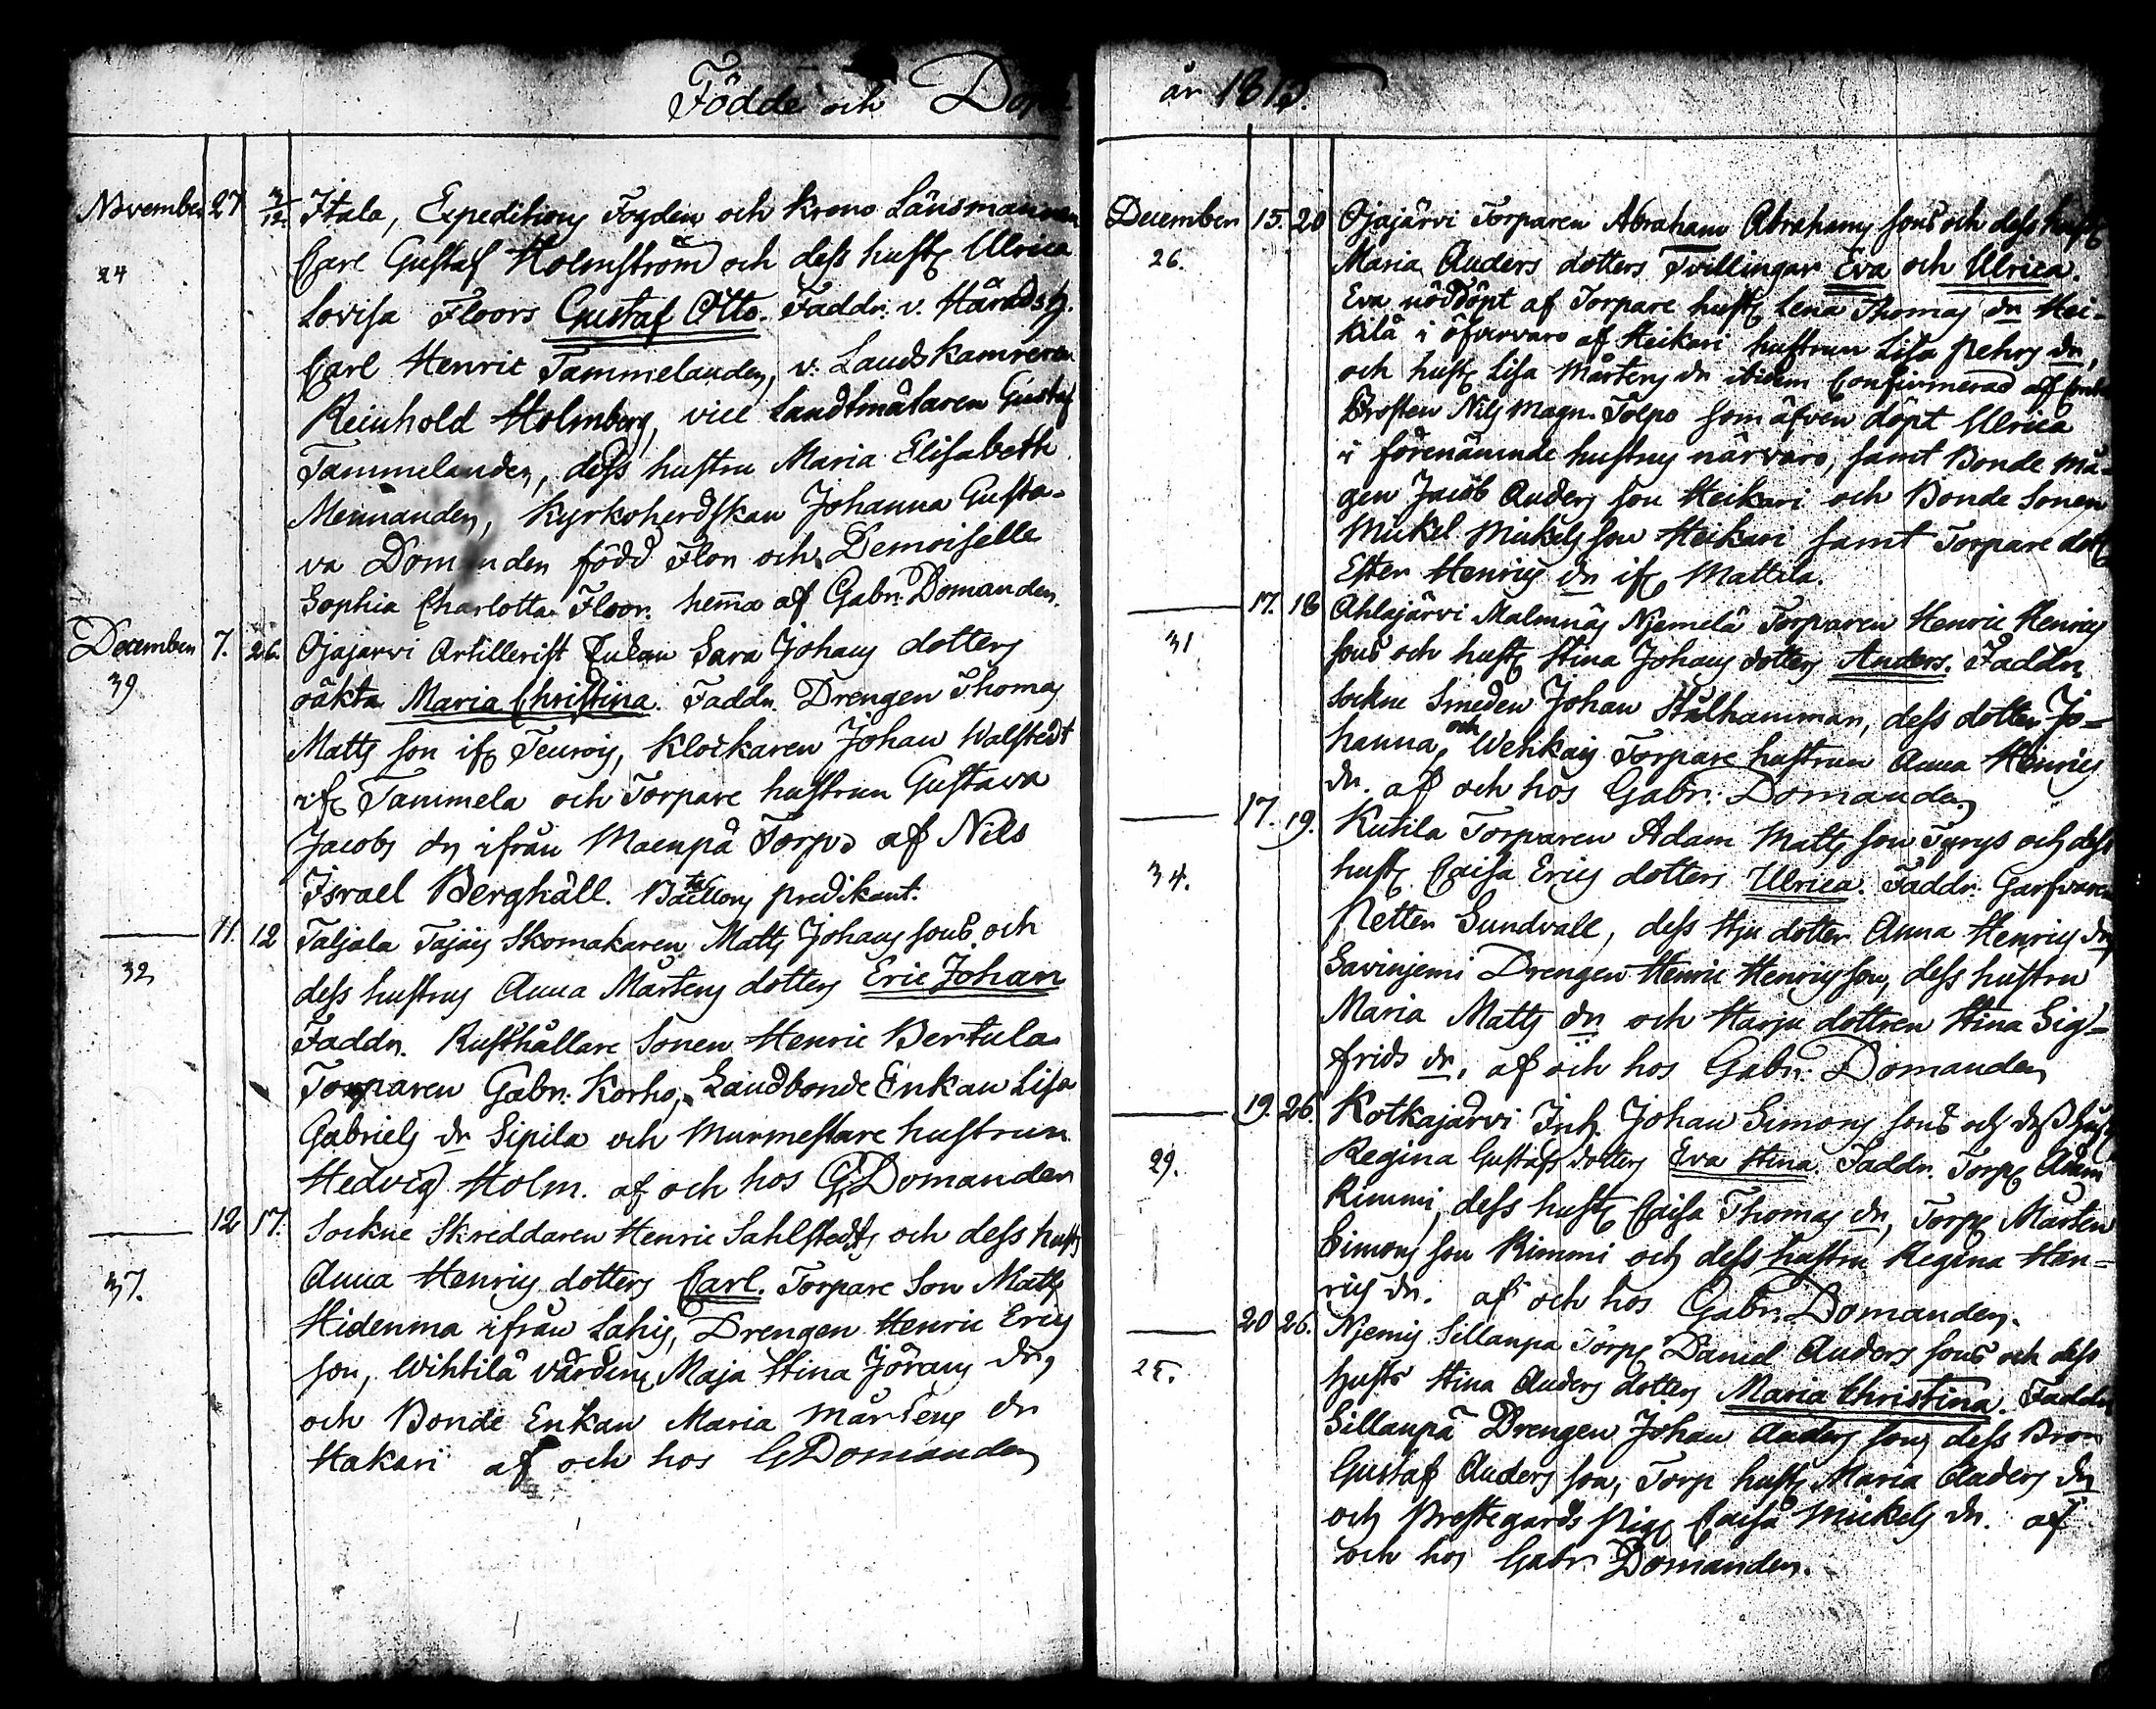 Födde och Döp
November 27 3/12 Itala, Expeditions Fogden och Krono Länsmannen
24 Carl Gustaf Holmström och dess hustr Ulrica
Lovisa Floors Gustaf Otto. Faddr. v. Häradsh.
Carl Henric Tammelander, v. Landskamreren
Reinhold Holmberg, vice Landtmätaren Gustaf
Tammelander, dess hustru Maria Elisabeth
Mennander, Kyrkoherdskan Johanna Gusta-
va Domander född Flor och Demoiselle
Sophia Charlotta Floor. hema af Gabr. Domander.
December 7. 26. Ojajarvi Artillerist Enkan Sara Johans dotters
39 oäkta Maria Christina. Faddr. Drengen Thomas
Matts son ifr Teurois, Klockaren Johan Walstedt
ifr Tammela och Torpare hustrun Gustava
Jacobs dr ifrån Maenpä Torp. af Nils
Israel Berghäll. Bataillons predikant.
11. 12 Taljala Tajais Skomakaren Matts Johans sons och
32 dess hustrus Anna Mårtens dotters Eric Johan
Faddr. Rusthållare Sonen Henric Bertula
Torparen Gabr. Korho, Landbonde Enkan Lisa
Gabriels dr Sipila och Murmestare hustrun
Hedvig Holm. af och hos G. Domander
12 17. Sockne Skreddaren Henric Sahlstedts och dess hustr
37. Anna Henrics dotters Carl. Torpare Son Matts
Hidenma ifrån Lahis, Drengen Henric Erics
son, Wihtilä värdin Maja Stina Jörans dr,
och Bonde Enkan Maria Mårtens dr
Hakari af och hos G Domander
år 181
December 15. 20 Ojajärvi Torparen Abraham Abrahams sons och dess hustr
26. Maria Anders dotters Tvillingar Eva och Ulrica.
Eva nöddöpt af Torpare hustr Lena Thomas dr Hei-
kilä i öfvervaro af Heikari hustrun Lisa Pehrs dr,
och hustr Lisa Mårtens dr ibidem Confirmerad af
Prosten Nils Magn. Tolpo som äfven döpt Ulrica
i förenämnde hustrus närvaro, samt Bonde må-
gen Jacob Anders son Heikari och Bonde Sonen
Mickel Mickels son Heikari samt Torpare dotr
Ester Henrics dr ifr Mattila.
17. 18 Ahlajärvi Malmnäs Njemelä Torparen Henric Henrics
31 sons och hustr Stina Johans dotters Anders. Faddr.
Sockne Smeden Johan Stålhammar, dess dotter Jo-
hanna, och Wehkais Torpare hustrun Anna Henrics
dr. af och hos Gabr. Domander
17. 19. Kutila Torparen Adam Matts son Tyrys och dess
34. hustr Caisa Erics dotters Ulrica. Faddr. Garfvaren
Petter Sundvall, dess Stju dotter Anna Henrics dr,
Savinjemi Drengen Henric Henrics son, dess hustru
Maria Matts dr och Harju dottren Stina Sig-
frids dr. af och hos Gabr. Domander
19. 26. Kotkajärvi Inh. Johan Simons sons och dess hustr
29. Regina Gustafs dotters Eva Stina. Faddr. Torpr Adam
Rimmi, dess hustr Caisa Thomas dr, Torpr Mårten
Simons son Rimmi och dess hustru Regina Hen-
rics dr. af och hos Gabr. Domander.
20 26. Njemis Sillanpä Torpr Daniel Anders sons och dess
25. hustr Stina Anders dotters Maria Christina. Faddr.
Sillanpä Drengen Johan Anders son, dess Bror
Gustaf Anders son, Torp hustr Maria Anders dr
och Prestegårds Pig Caisa Mickels dr. af
och hos Gabr Domander.